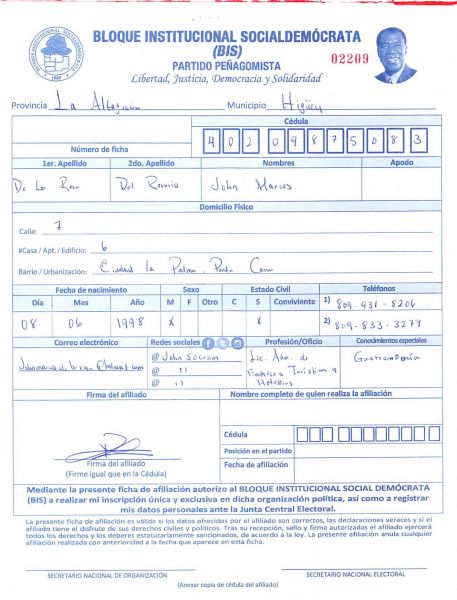 BLOQUE INSTITUCIONAL SOCIALDEMÓCRATA
(BIS)
PARTIDO PEÑAGOMISTA
02209
Libertad, Justicia, Democracia y Solidaridad
Provincia La Altagracia Municipio Higüey
Cédula
Número de ficha 40209875083
1er. Apellido 2do. Apellido Nombres Apodo
De La Rosa Del Rosario John Marcos
Domicilio Físico
Calle: 7
#Casa / Apt. / Edificio: 6
Barrio / Urbanización: Ciudad la Palma, Punta Cana
Fecha de nacimiento Sexo Estado Civil Teléfonos
Día Mes Año M F Otro C S Conviviente 1) 809-431-8206
08 06 1998 X X 2) 809-833-3279
Correo electrónico Redes sociales Profesión/Oficio Conocimientos especiales
@ John
@ 11
@ 11
Lic. Adm. de Empresas Turísticas y Hoteleras
Gastronomía
Firma del afiliado Nombre completo de quien realiza la afiliación
Cédula
Posición en el partido
Fecha de afiliación
Firma del afiliado
(Firme igual que en la Cédula)
Mediante la presente ficha de afiliación autorizo al BLOQUE INSTITUCIONAL SOCIAL DEMÓCRATA
(BIS) a realizar mi inscripción única y exclusiva en dicha organización política, así como a registrar
mis datos personales ante la Junta Central Electoral.
La presente ficha de afiliación es válida si los datos ofrecidos por el afiliado son correctos, las declaraciones veraces y si el
afiliado tiene el disfrute de sus derechos civiles y políticos. Tras su recepción, sello y firma autorizadas el afiliado ejercerá
todos los derechos y los deberes estatutariamente sancionados, de acuerdo a la ley. La presente afiliación anula cualquier
afiliación realizada con anterioridad a la fecha que aparece en esta ficha.
SECRETARIO NACIONAL DE ORGANIZACIÓN SECRETARIO NACIONAL ELECTORAL
(Anexar copia de cédula del afiliado)